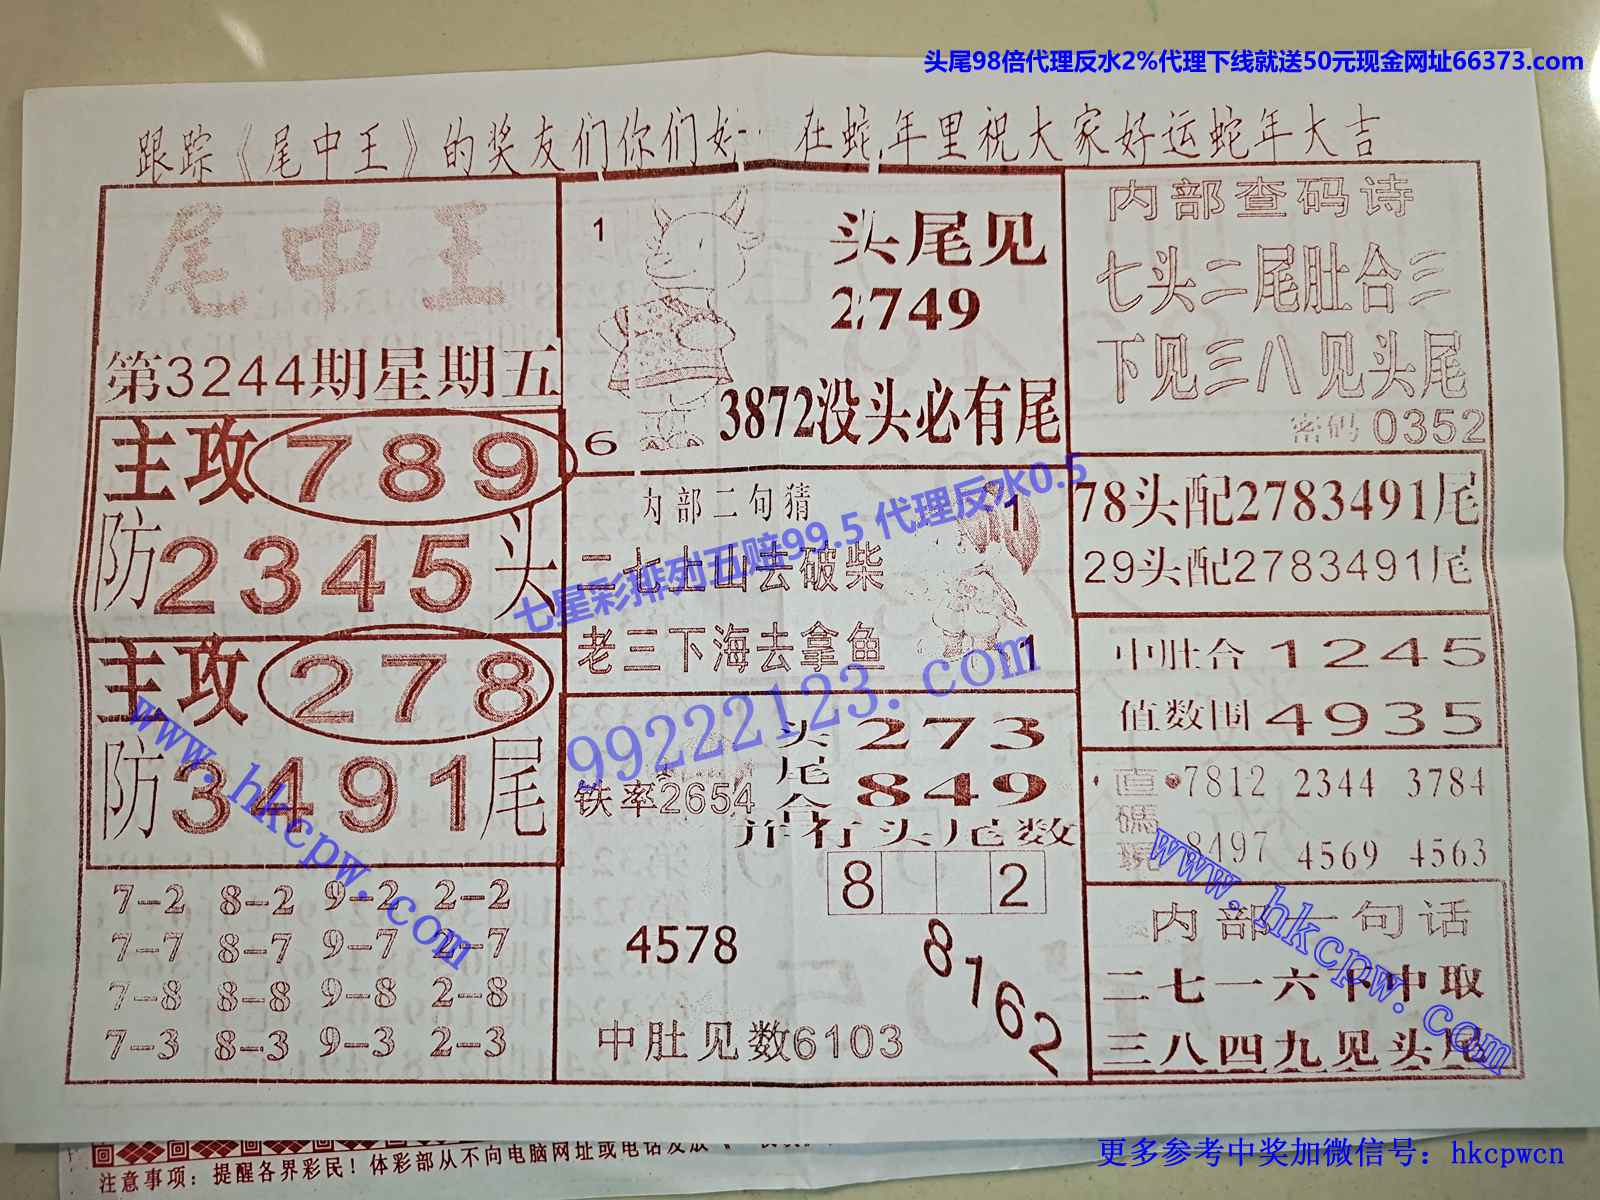 头尾98倍代理反水2%代理下线就送50元现金网址66373.com
跟踪《尾中王》的奖友们你们好 在蛇年里祝大家好运蛇年大吉
尾中王
第3244期星期五
主攻789
防2345头
主攻278
防3491尾
7-2 8-2 9-2 2-2
7-7 8-7 9-7 2-7
7-8 8-8 9-8 2-8
7-3 8-3 9-3 2-3
1
头尾见
2749
3872没头必有尾
6
内部二句猜
二七上山去破柴
老三下海去拿鱼
1
1
七星彩排列五赔99.5 代理反水0.5
99222123.com
头273
尾849
合
铁率2654
并有头尾数
8 2
4578
8162
中肚见数6103
内部查码诗
七头二尾肚合三
下见三八见头尾
密码0352
78头配2783491尾
29头配2783491尾
中肚合1245
值数围4935
直碼玩
7812 2344 3784
8497 4569 4563
内部一句话
二七一六下中取
三八四九见头尾
www.hkcpw.com
www.hkcpw.com
注意事项：提醒各界彩民！体彩部从不向电脑网址或电话发放
更多参考中奖加微信号：hkcpwcn